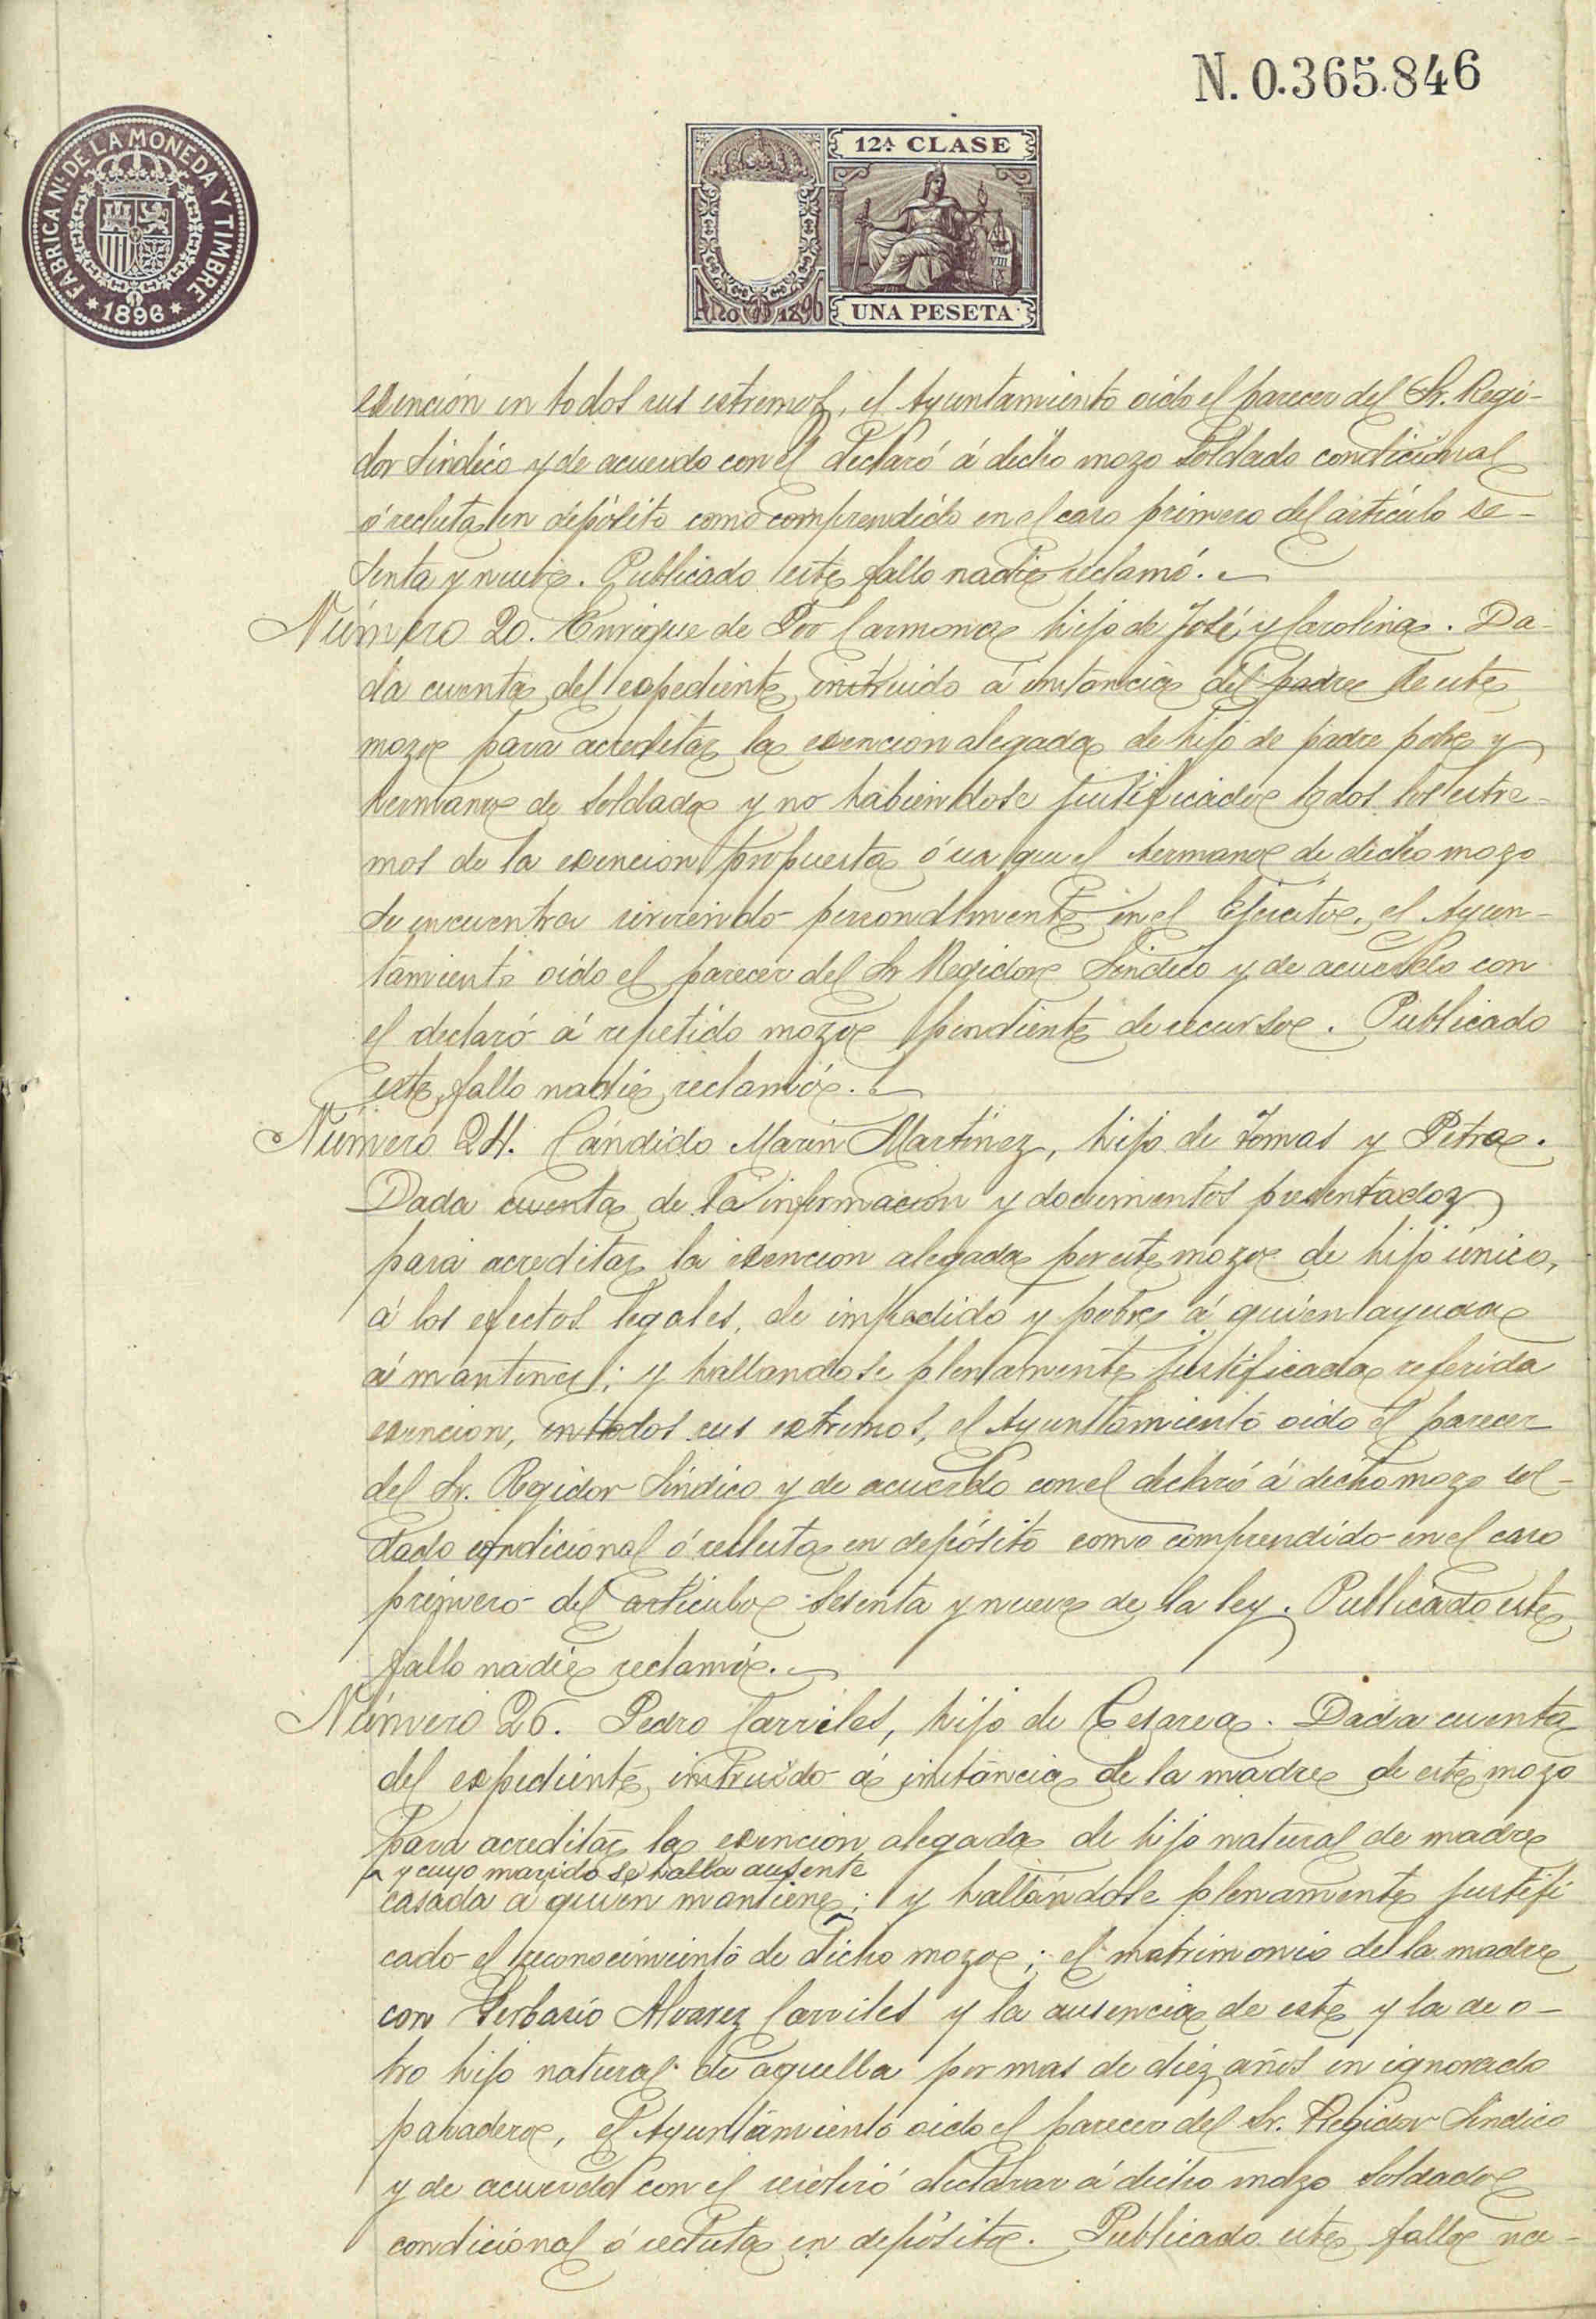 N. 0.365.846
FABRICA NL. DE LA MONEDA Y TIMBRE
* 1896 *
12A CLASE
Año D 1896
UNA PESETA
VIII
IX
exención en todos sus estremos, el Ayuntamiento oido el parecer del Sr. Regi-
dor Síndico y de acuerdo con él declaró á dicho mozo Soldado condicional
ó recluta en depósito como comprendido en el caso primero del artículo se-
senta y nueve. Publicado este fallo nadie reclamó.
Número 20. Enrique de Carmona hijo de José y Carolina. Da-
da cuenta del expediente instruido á instancia del padre de este
mozo para acreditar la exencion alegada de hijo de padre pobre y
hermano de soldado y no habiendose justificado todos los estre-
mos de la exencion propuesta ó sea que el hermano de dicho mozo
se encuentra sirviendo personalmente en el Ejército, el Ayun-
tamiento oído el parecer del Sr Regidor Síndico y de acuerdo con
el declaró á repetido mozo pendiente de recurso. Publicado
este fallo nadie reclamó.
Número 24. Cándido Marin Martínez, hijo de Tomas y Petra.
Dada cuenta de la informacion y documentos presentados
para acreditar la exencion alegada por este mozo de hijo único,
á los efectos legales, de impedido y pobre á quien ayuda
á mantener; y hallandose plenamente justificada referida
exencion, en todos sus extremos, el Ayuntamiento oido el parecer
del Sr. Regidor Síndico y de acuerdo con el declaró á dicho mozo sol-
dado condicional ó recluta en depósito como comprendido en el caso
primero del artículo sesenta y nueve de la ley. Publicado este
fallo nadie reclamó.
Número 26. Pedro Carriles, hijo de Cesarea. Dada cuenta
del expediente instruido á instancia de la madre de este mozo
para acreditar la exencion alegada de hijo natural de madre
y cuyo marido se halla ausente
casada á quien mantiene; y hallándose plenamente justifi
cado el reconocimiento de dicho mozo; el matrimonio de la madre
con Serbasio Alvarez Carriles y la ausencia de este y la de o-
tro hijo natural de aquella por mas de diez años en ignorado
paradero, el Ayuntamiento oido el parecer del Sr. Regidor Síndico
y de acuerdo con el resolvió declarar á dicho mozo soldado
condicional ó recluta en depósito. Publicado este fallo na-